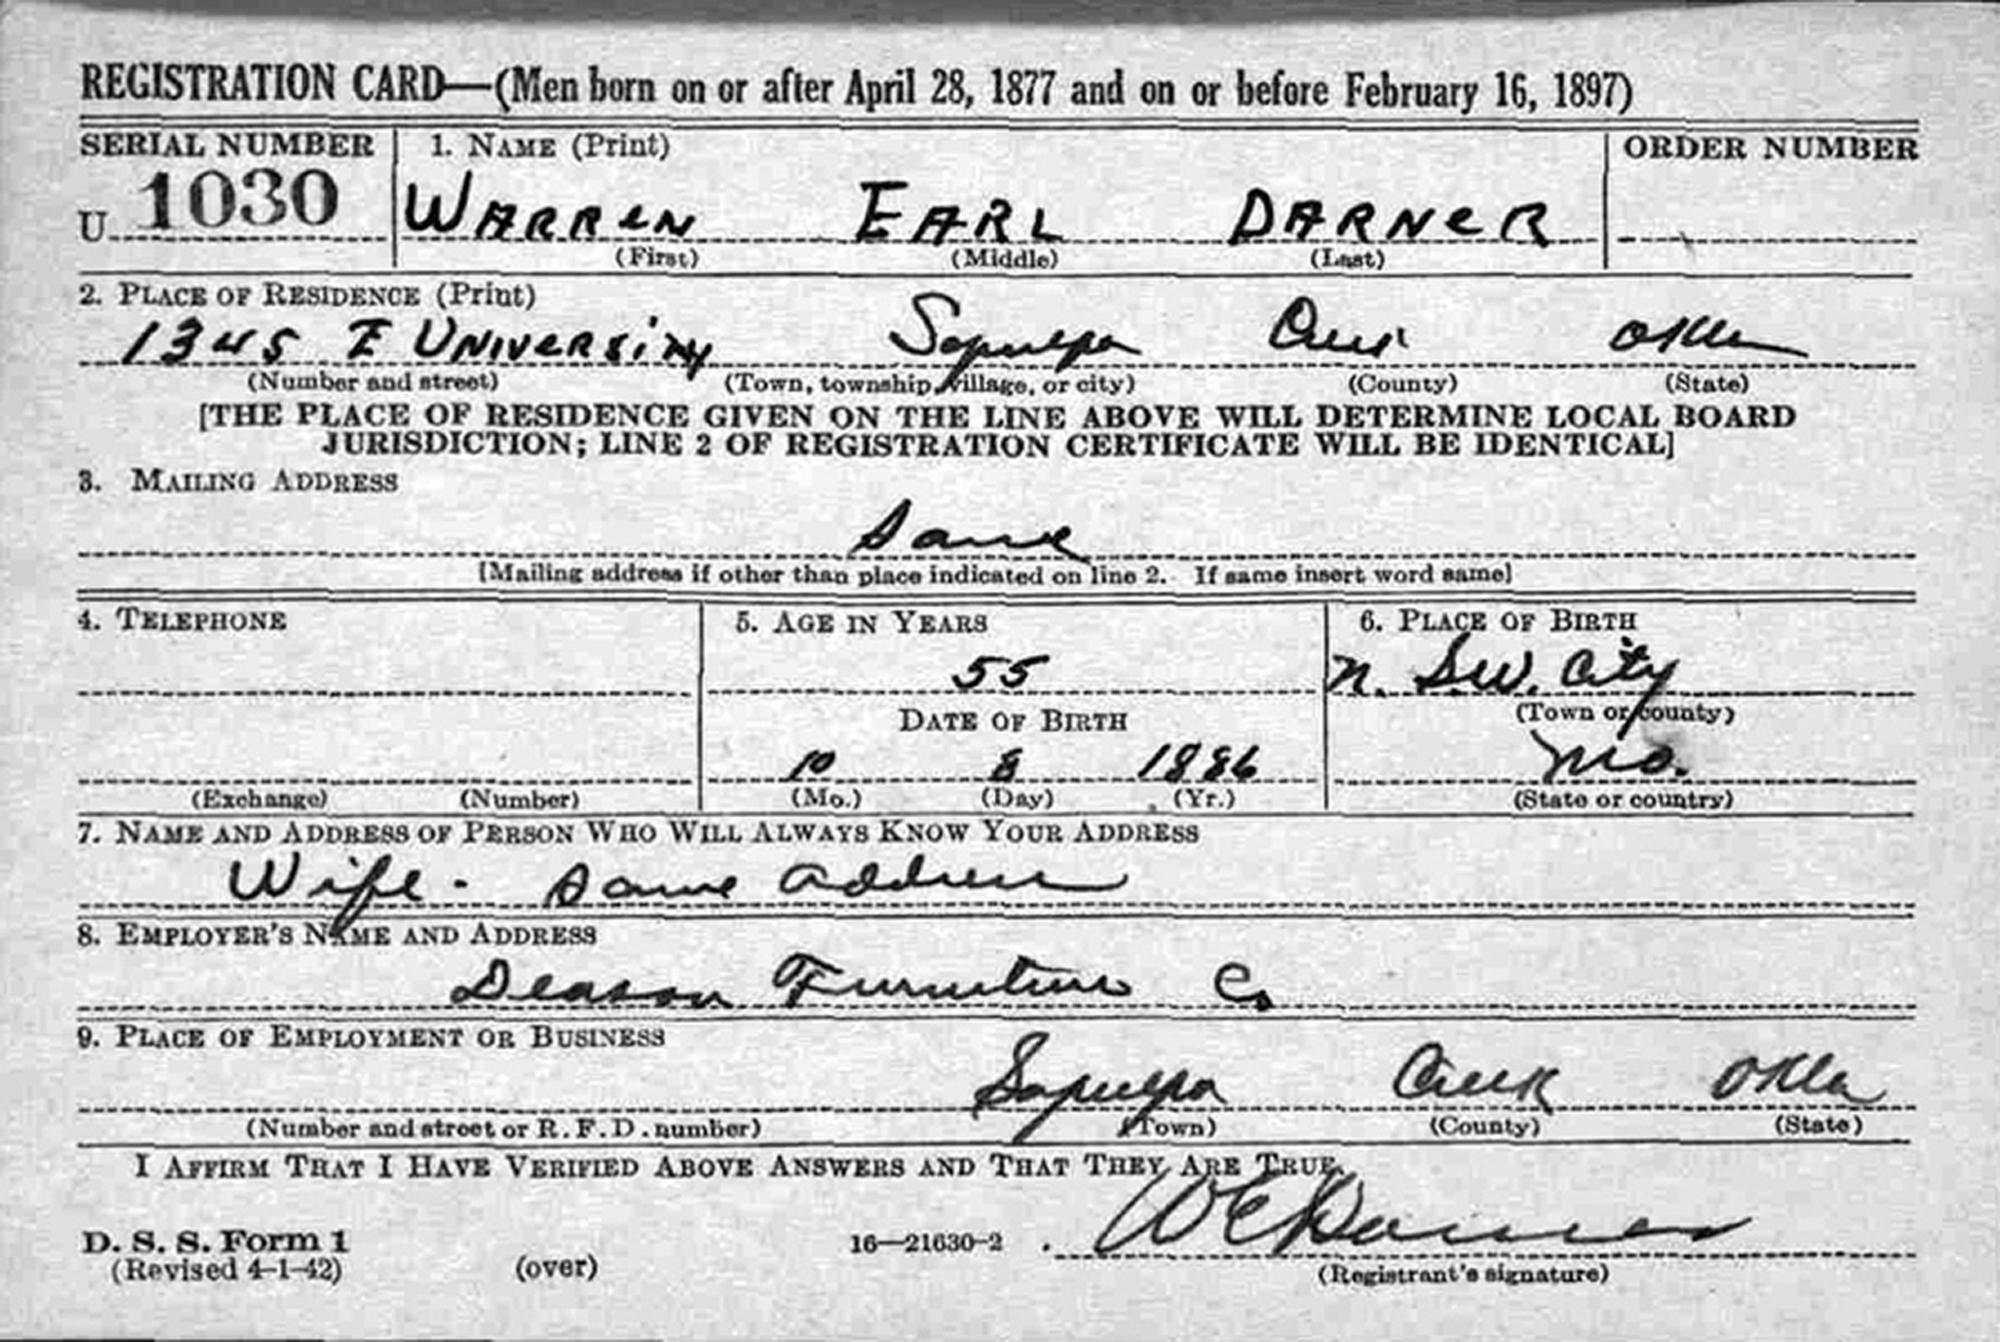 REGISTRATION CARD—(Men born on or after April 28, 1877 and on or before February 16, 1897)
SERIAL NUMBER 1. NAME (Print) ORDER NUMBER
U 1030 WARREN EARL DARNER
(First) (Middle) (Last)
2. PLACE OF RESIDENCE (Print)
1345 E UNIVERSITY Sapulpa Creek Okla
(Number and street) (Town, township, village, or city) (County) (State)
[THE PLACE OF RESIDENCE GIVEN ON THE LINE ABOVE WILL DETERMINE LOCAL BOARD
JURISDICTION; LINE 2 OF REGISTRATION CERTIFICATE WILL BE IDENTICAL]
3. MAILING ADDRESS
Same
[Mailing address if other than place indicated on line 2. If same insert word same]
4. TELEPHONE 5. AGE IN YEARS 6. PLACE OF BIRTH
55 N. S.W. City
DATE OF BIRTH (Town or county)
10 8 1886 Mo.
(Exchange) (Number) (Mo.) (Day) (Yr.) (State or country)
7. NAME AND ADDRESS OF PERSON WHO WILL ALWAYS KNOW YOUR ADDRESS
Wife - Same address
8. EMPLOYER'S NAME AND ADDRESS
Deason Furniture Co
9. PLACE OF EMPLOYMENT OR BUSINESS
Sapulpa Creek Okla
(Number and street or R. F. D. number) (Town) (County) (State)
I AFFIRM THAT I HAVE VERIFIED ABOVE ANSWERS AND THAT THEY ARE TRUE.
W E Darner
D. S. S. Form 1
(Revised 4-1-42) (over) 16—21630-2 (Registrant's signature)